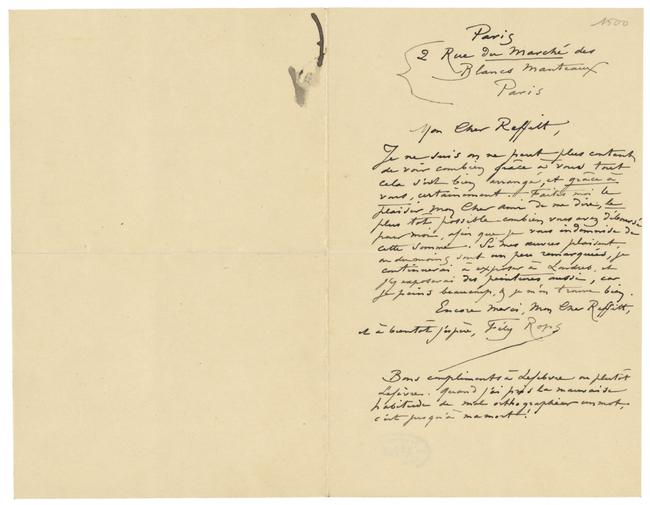 1500
Paris
2 Rue du Marché des
Blancs Manteaux
Paris
Mon Cher Reffitt,
Je ne suis on ne peut plus content
de voir combien grâce à vous tout
cela s'est bien arrangé, et grâce à
vous, certainement. Faites moi le
plaisir, Mon Cher ami de me dire, le
plus tôt possible combien vous avez déboursé
pour moi, afin que je vous indemnise de
cette somme. Si mes œuvres plaisent,
ou du moins sont un peu remarquées, je
continuerai à exposer à Londres. et
j'y exposerai des peintures aussi, car
je peins beaucoup, & je m'en trouve bien.
Encore merci, Mon Cher Reffitt,
et à bientôt j'espère, Fély Rops
Bons compliments à Lefebvre ou plutôt
Lefèvre. Quand j'ai pris la mauvaise
habitude de mal orthographier un mot,
c'est jusqu'à ma mort.